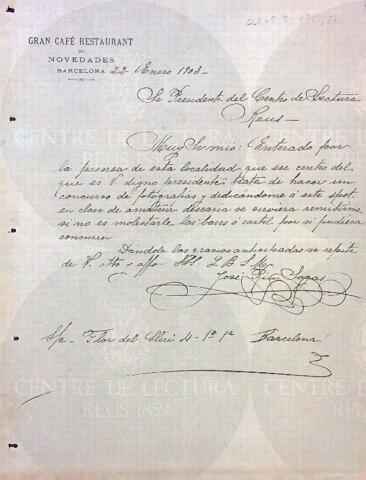 GRAN CAFÉ RESTAURANT
DE
NOVEDADES
BARCELONA 22 Enero 1903-
Sr Presidente del Centro de Lectura
Reus-
Muy Sr mio: Enterado por
la prensa de esta localidad que ese centro del
que es V. digno presidente trata de hacer un
concurso de fotografias y dedicandome á este sport
en clase de amateur desearia se sirviera remitirme
si no es molestarle las bases ó cartel por si pudiera
concurrir
Dandole las gracias anticipadas se repite
de V. atto y affo SS. Q B S M
José
S/c Flor del Lliri 4-1º 1ª Barcelona
CENTRE DE LECTURA
REUS 1859